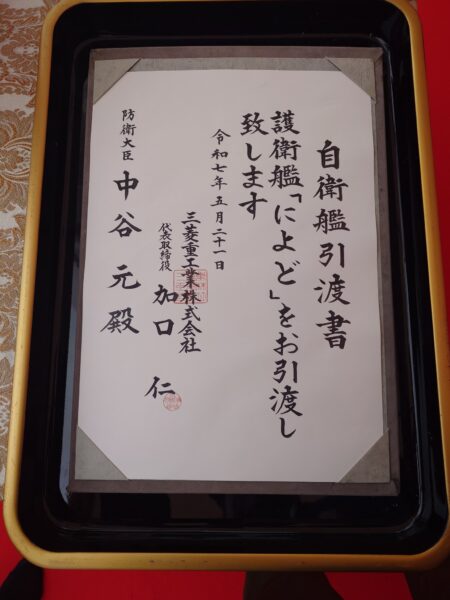 自衛艦引渡書
護衛艦「によど」をお引渡し
致します
令和七年五月二十一日
三菱重工業株式会社
代表取締役 加口 仁
防衛大臣 中谷 元 殿